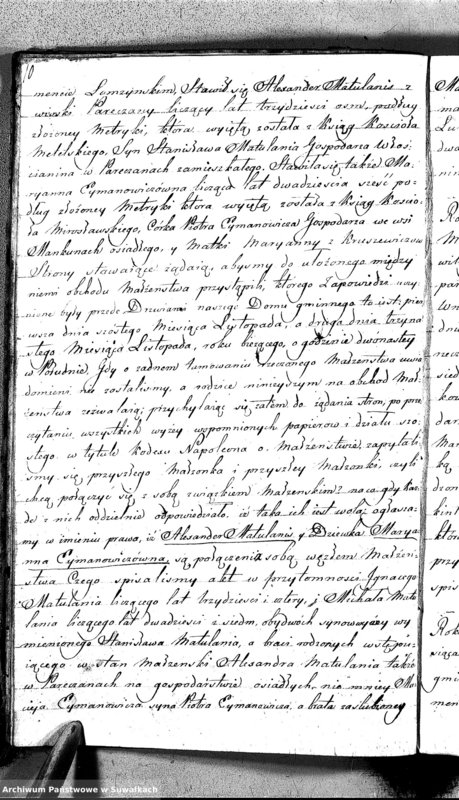 10
mencie Łomzynskim, Stawił się Alexander Matulanis z
wioski Pareczany liczący lat trzydziesci osm podług
złożoney Metryki, ktora wyjętą została z Ksiąg Koscioła
Metelskiego, Syn Stanisława Matulania Gospodarza Włos-
cianina w Pareczanach zamieszkałego. Stawiła się także Ma-
ryanna Cymanowiczowna licząca lat dwadziescia szesć po-
dług złożoney Metryki ktora wyjętą została z Ksiąg Koscio-
ła Mirosławskiego, Corka Piotra Cymanowicza Gospodarza we wsi
Mankunach osiadłego, y Matki Maryanny z Kruszewiczow
Strony stawaiące żądaią, abysmy do ułożonego między
niemi obchodu Małżenstwa przystąpili, ktorego Zapowiedzi uczy-
nione były przede Drzwiami naszego Domu gminnego to iest: pier-
wsza dnia szostego Miesiąca Listopada, a druga dnia trzyna-
stego Miesiąca Listopada, roku bieżącego, o godzinie dwonastey
w Południe. Gdy o żadnem tamowaniu rzeczonego Małżenstwa uwia-
domieni nie zostalismy, a rodzice ninieyszym na obchod Mał-
żenstwa zezwalaią; przychylaiąc się zatem do żądania stron, po prze-
czytaniu wszystkich wyżey wspomnionych papierow i działu szo-
stego w tytule Kodexu Napoleona o Małżenstwie, zapytali-
smy się przyszłego Małżonka i przyszłey Małżonki, czyli
chcą połączyć się z sobą związkiem Małżenskim? na co gdy każ-
de z nich oddzielnie odpowiedziało, iż taka ich iest wola; ogłasza-
my w imieniu prawa, iż Alexander Matulanis y Dziewka Marya-
nna Cymanowiczowna, są połączeni z sobą węzłem Małżen-
stwa Czego spisalismy akt w przytomnosci Ignacego
Matulania liczącego lat trzydziesci i cztery, j Michała Matu-
lania liczącego lat dwadziesci z siedm, obydwoch synow wyżey wy-
mienionego Stanisława Matulania, a braci rodzonych wstępu-
iącego w stan małżenski Alexandra Matulania także
w Pareczanach na gospodarstwie osiadłych, nie mniey Ma-
cieja Cymanowicza syna Piotra Cymanowicza, a brata zaslubioney
Archiwum Państwowe w Suwałkach